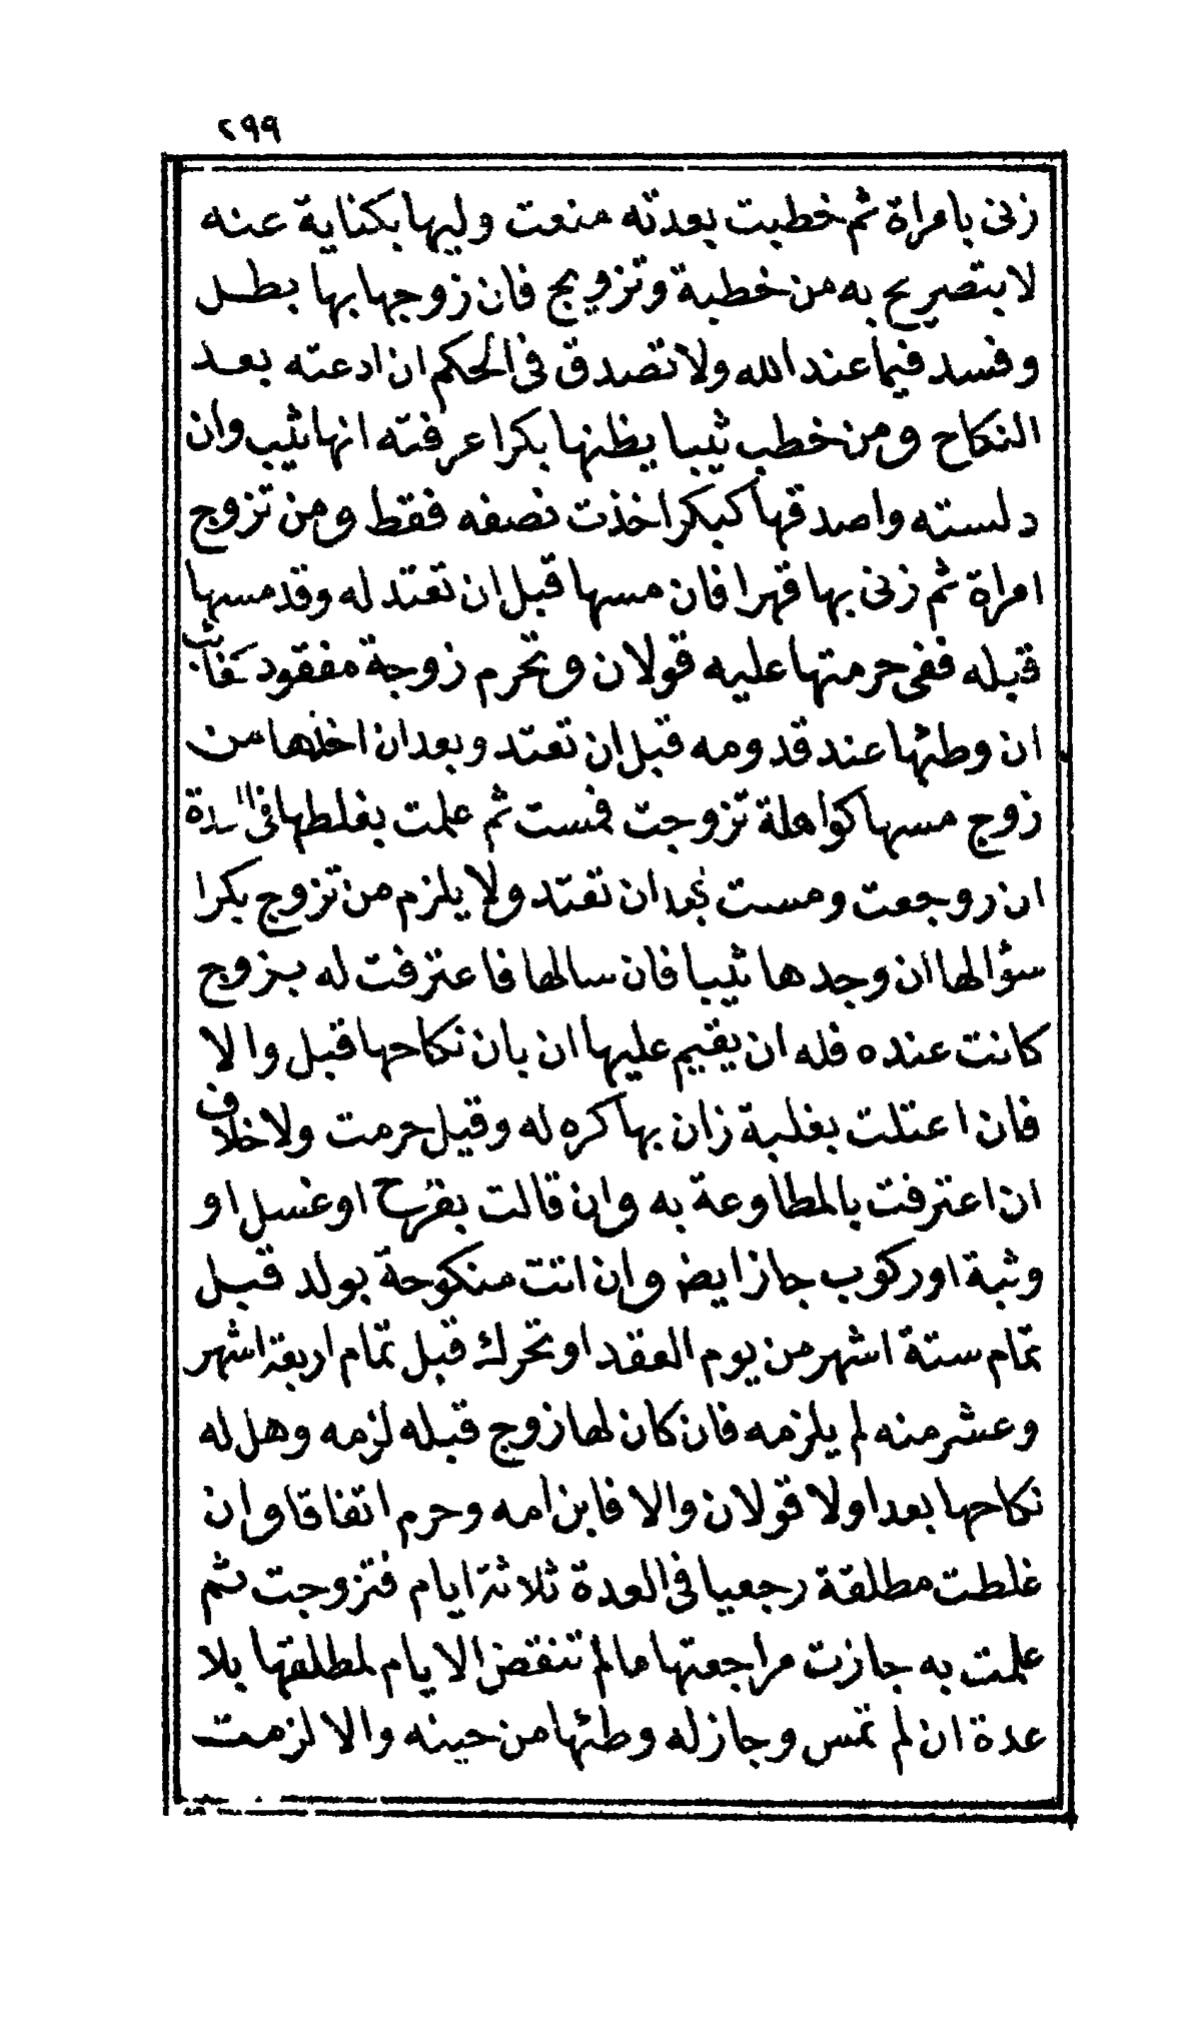 ٢٩٩
زنى بامراة ثم خطبت بعدته منعت وليها بكناية عنه
لا بتصريح به من خطبة وتزويج فان زوجها بها بطل
وفسد فيما عند الله ولا تصدق فى الحكم ان ادعته بعد
النكاح ومن خطب ثيبا يظنها بكرا عرفته انها ثيب وان
دلسته واصدقها كبكر اخذت نصفه فقط ومن تزوج
امراة ثم زنى بها قهرا فان مسها قبل ان تعتد له وقد مسها
قبله ففى حرمتها عليه قولان وتحرم زوجة مفقود كغائب
ان وطئها عند قدومه قبل ان تعتد وبعد ان اخذها من
زوج مسها كواهلة تزوجت فمست ثم علمت بغلطها فى العدة
ان روجعت ومست بعد ان تعتد ولا يلزم من تزوج بكرا
سؤالها ان وجدها ثيبا فان سالها فاعترفت له بزوج
كانت عنده فله ان يقيم عليها ان بان نكاحها قبل والا
فان اعتلت بغلبة زان بها كره له وقيل حرمت ولا خلاف
ان اعترفت بالمطاوعة به وان قالت بقرح او غسل او
وثبة او ركوب جاز ايض وان اتت منكوحة بولد قبل
تمام ستة اشهر من يوم العقد او تحرك قبل تمام اربعة اشهر
وعشر منه لم يلزمه فان كان لها زوج قبله لزمه وهل له
نكاحها بعد اولا قولان والا فابن امه وحرم اتفاقا وان
غلطت مطلقة رجعيا فى العدة ثلاثة ايام فتزوجت ثم
علمت به جازت مراجعتها مالم تنقض الايام لمطلقها بلا
عدة ان لم تمس وجاز له وطئها من حينه والا لزمت